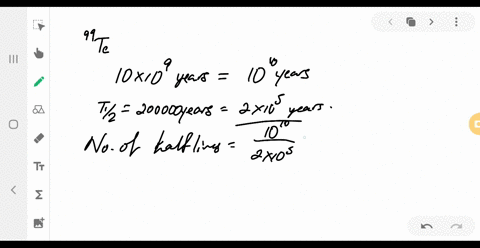 ⁹⁹Tc
10×10⁹ years = 10¹⁰ years
T1/2 = 200000years = 2×10⁵ years.
No. of half lives = 10¹⁰/2×10⁵